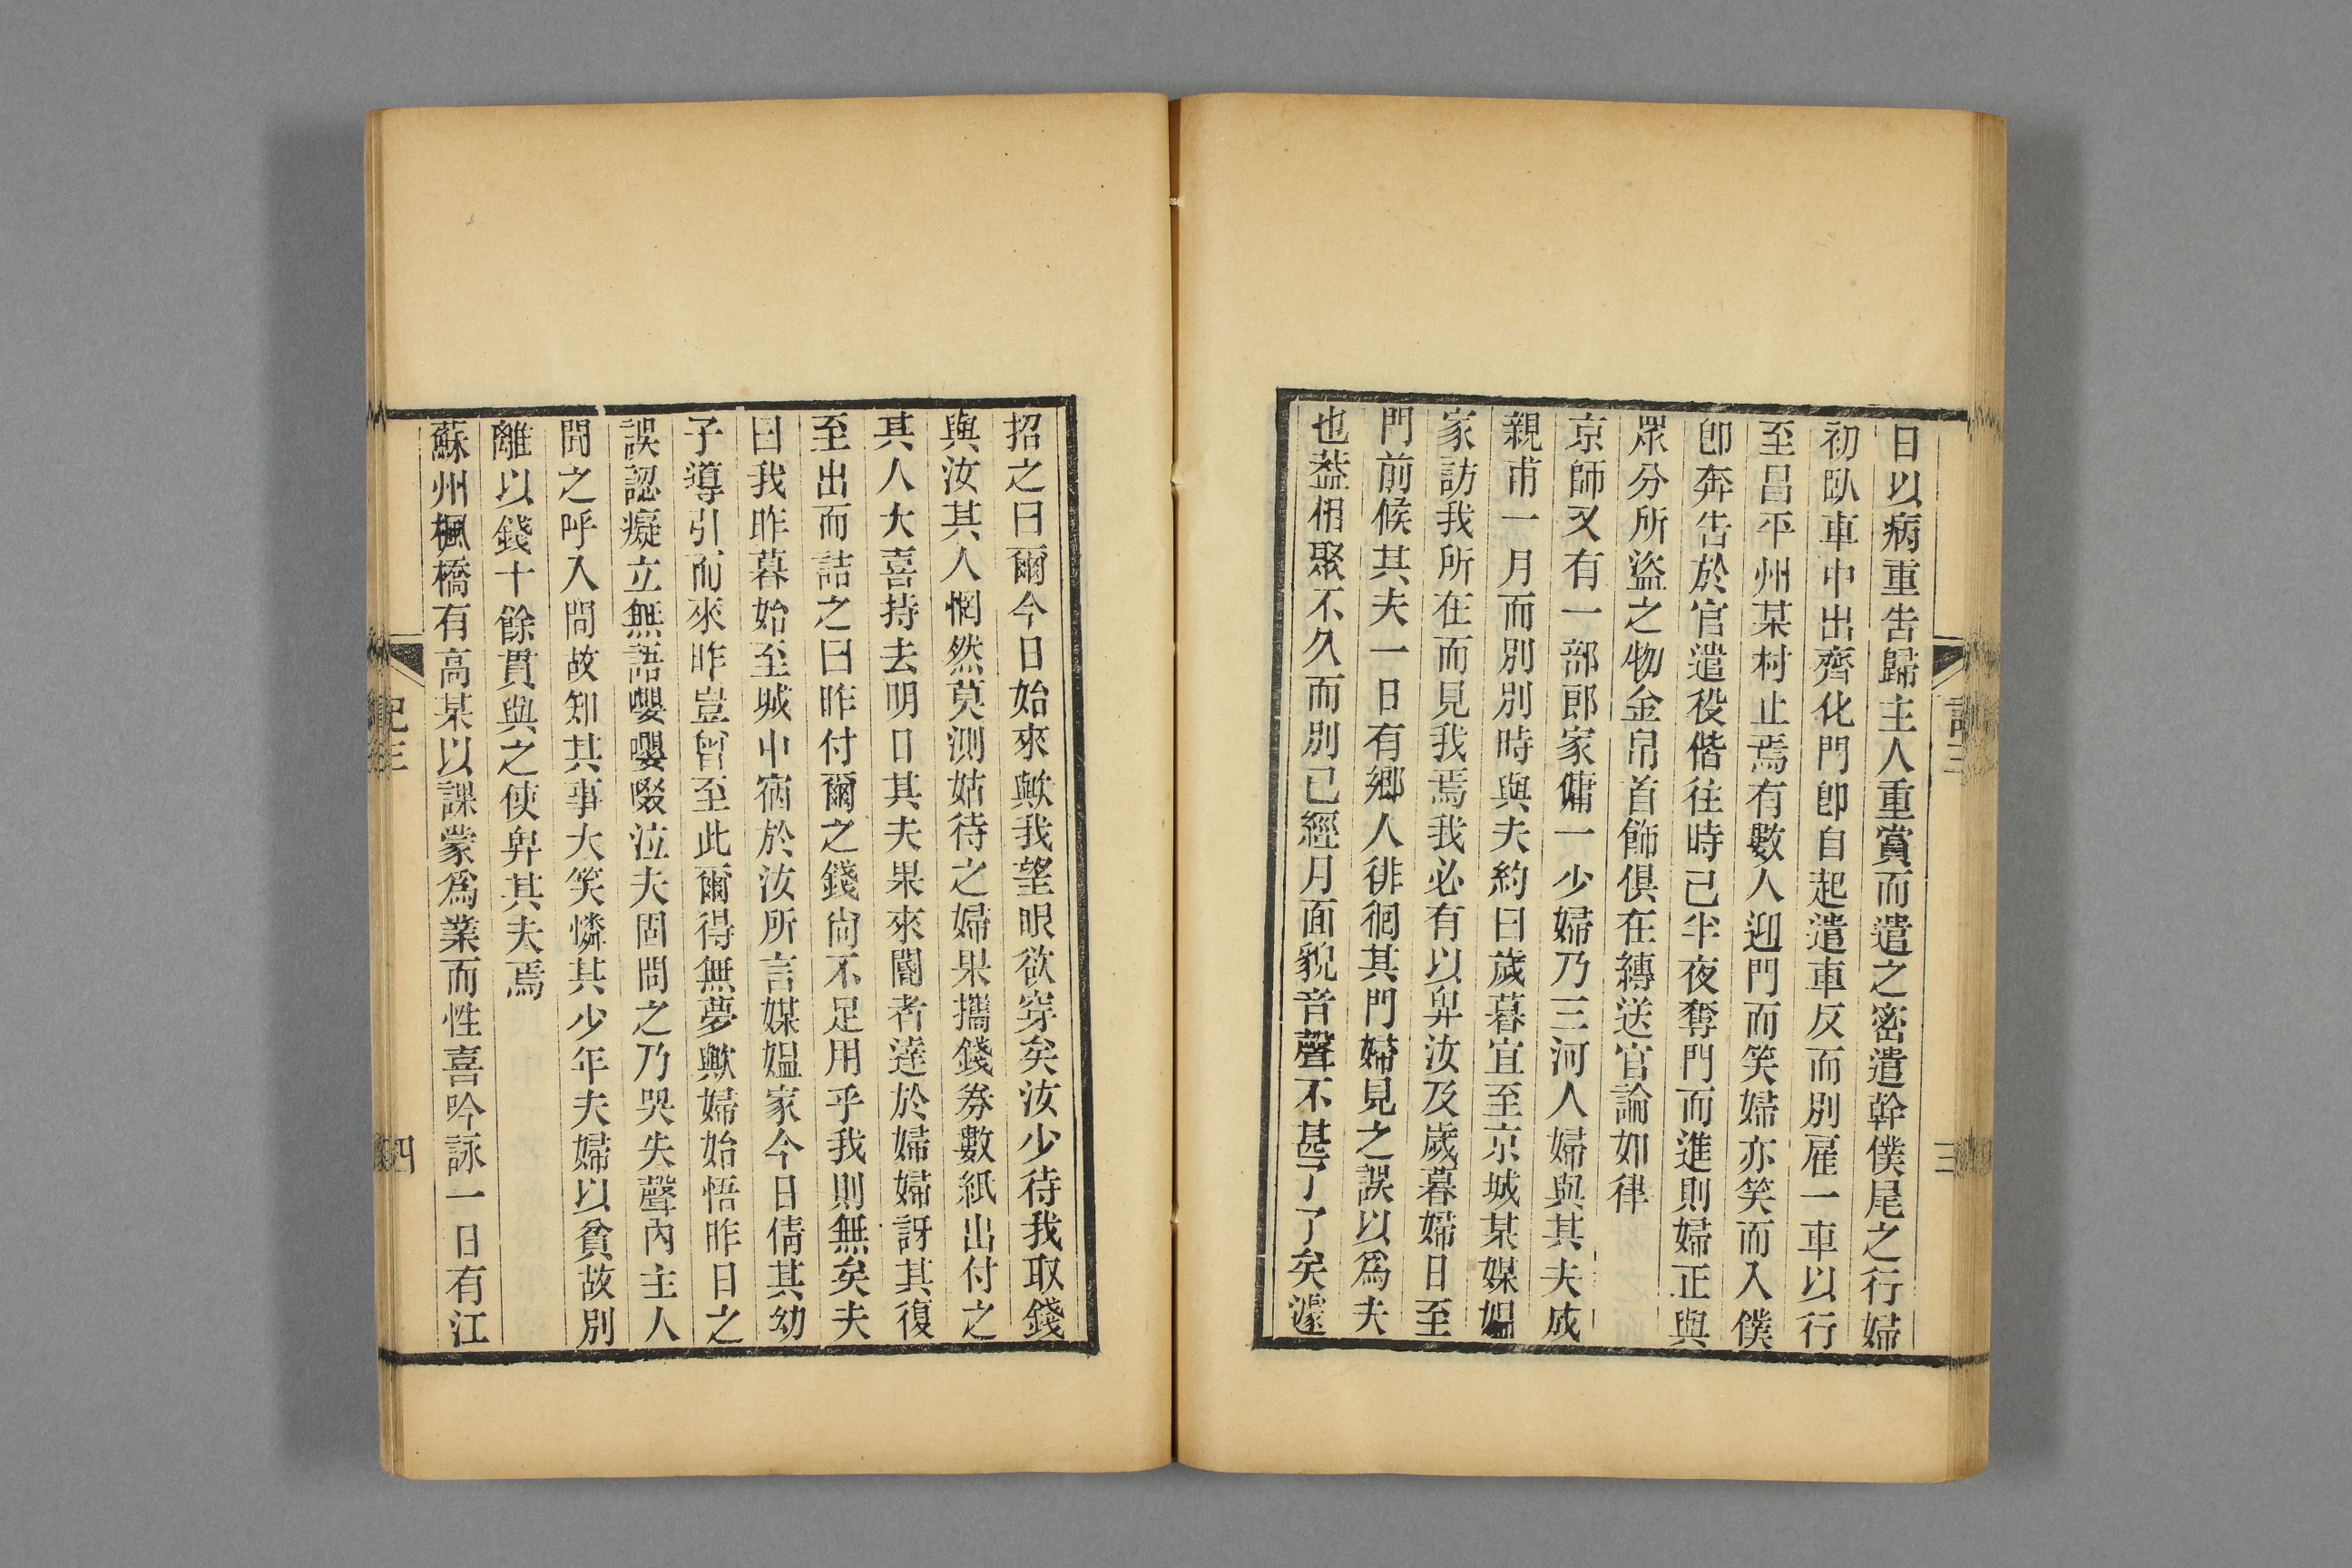 日以病重吿歸主人重賞而遣之密遣幹僕尾之行婦
初臥車中出齊化門卽自起遣車反而別雇一車以行
至昌平州某村止焉有數人迎門而笑婦亦笑而入僕
卽奔告於官遣役偕往時已半夜奪門而進則婦正與
眾分所盜之物金帛首飾俱在縛送官論如律
京師又有一部郎家傭一少婦乃三河人婦與其夫成
親甫一月而別別時與夫約曰歲暮宜至京城某媒媪
家訪我所在而見我焉我必有以畀汝及歲暮婦日至
門前候其夫一日有鄉人徘徊其門婦見之誤以爲夫
也葢相聚不久而別已經月面貌音聲不甚了了矣遽
招之曰爾今日始來歟我望眼欲穿矣汝少待我取錢
與汝其人惘然莫測姑待之婦果攜錢券數紙出付之
其人大喜持去明日其夫果來閽者達於婦婦訝其復
至出而詰之曰昨付爾之錢尙不足用乎我則無矣夫
曰我昨暮始至城中宿於汝所言媒媪家今日倩其幼
子導引而來昨豈曾至此爾得無夢歟婦始悟昨日之
誤認癡立無語嚶嚶啜泣夫固問之乃哭失聲內主人
聞之呼入問故知其事大笑憐其少年夫婦以貧故別
離以錢十餘貫與之使畀其夫焉
蘇州楓橋有高某以課蒙爲業而性喜吟詠一日有江
記三
四